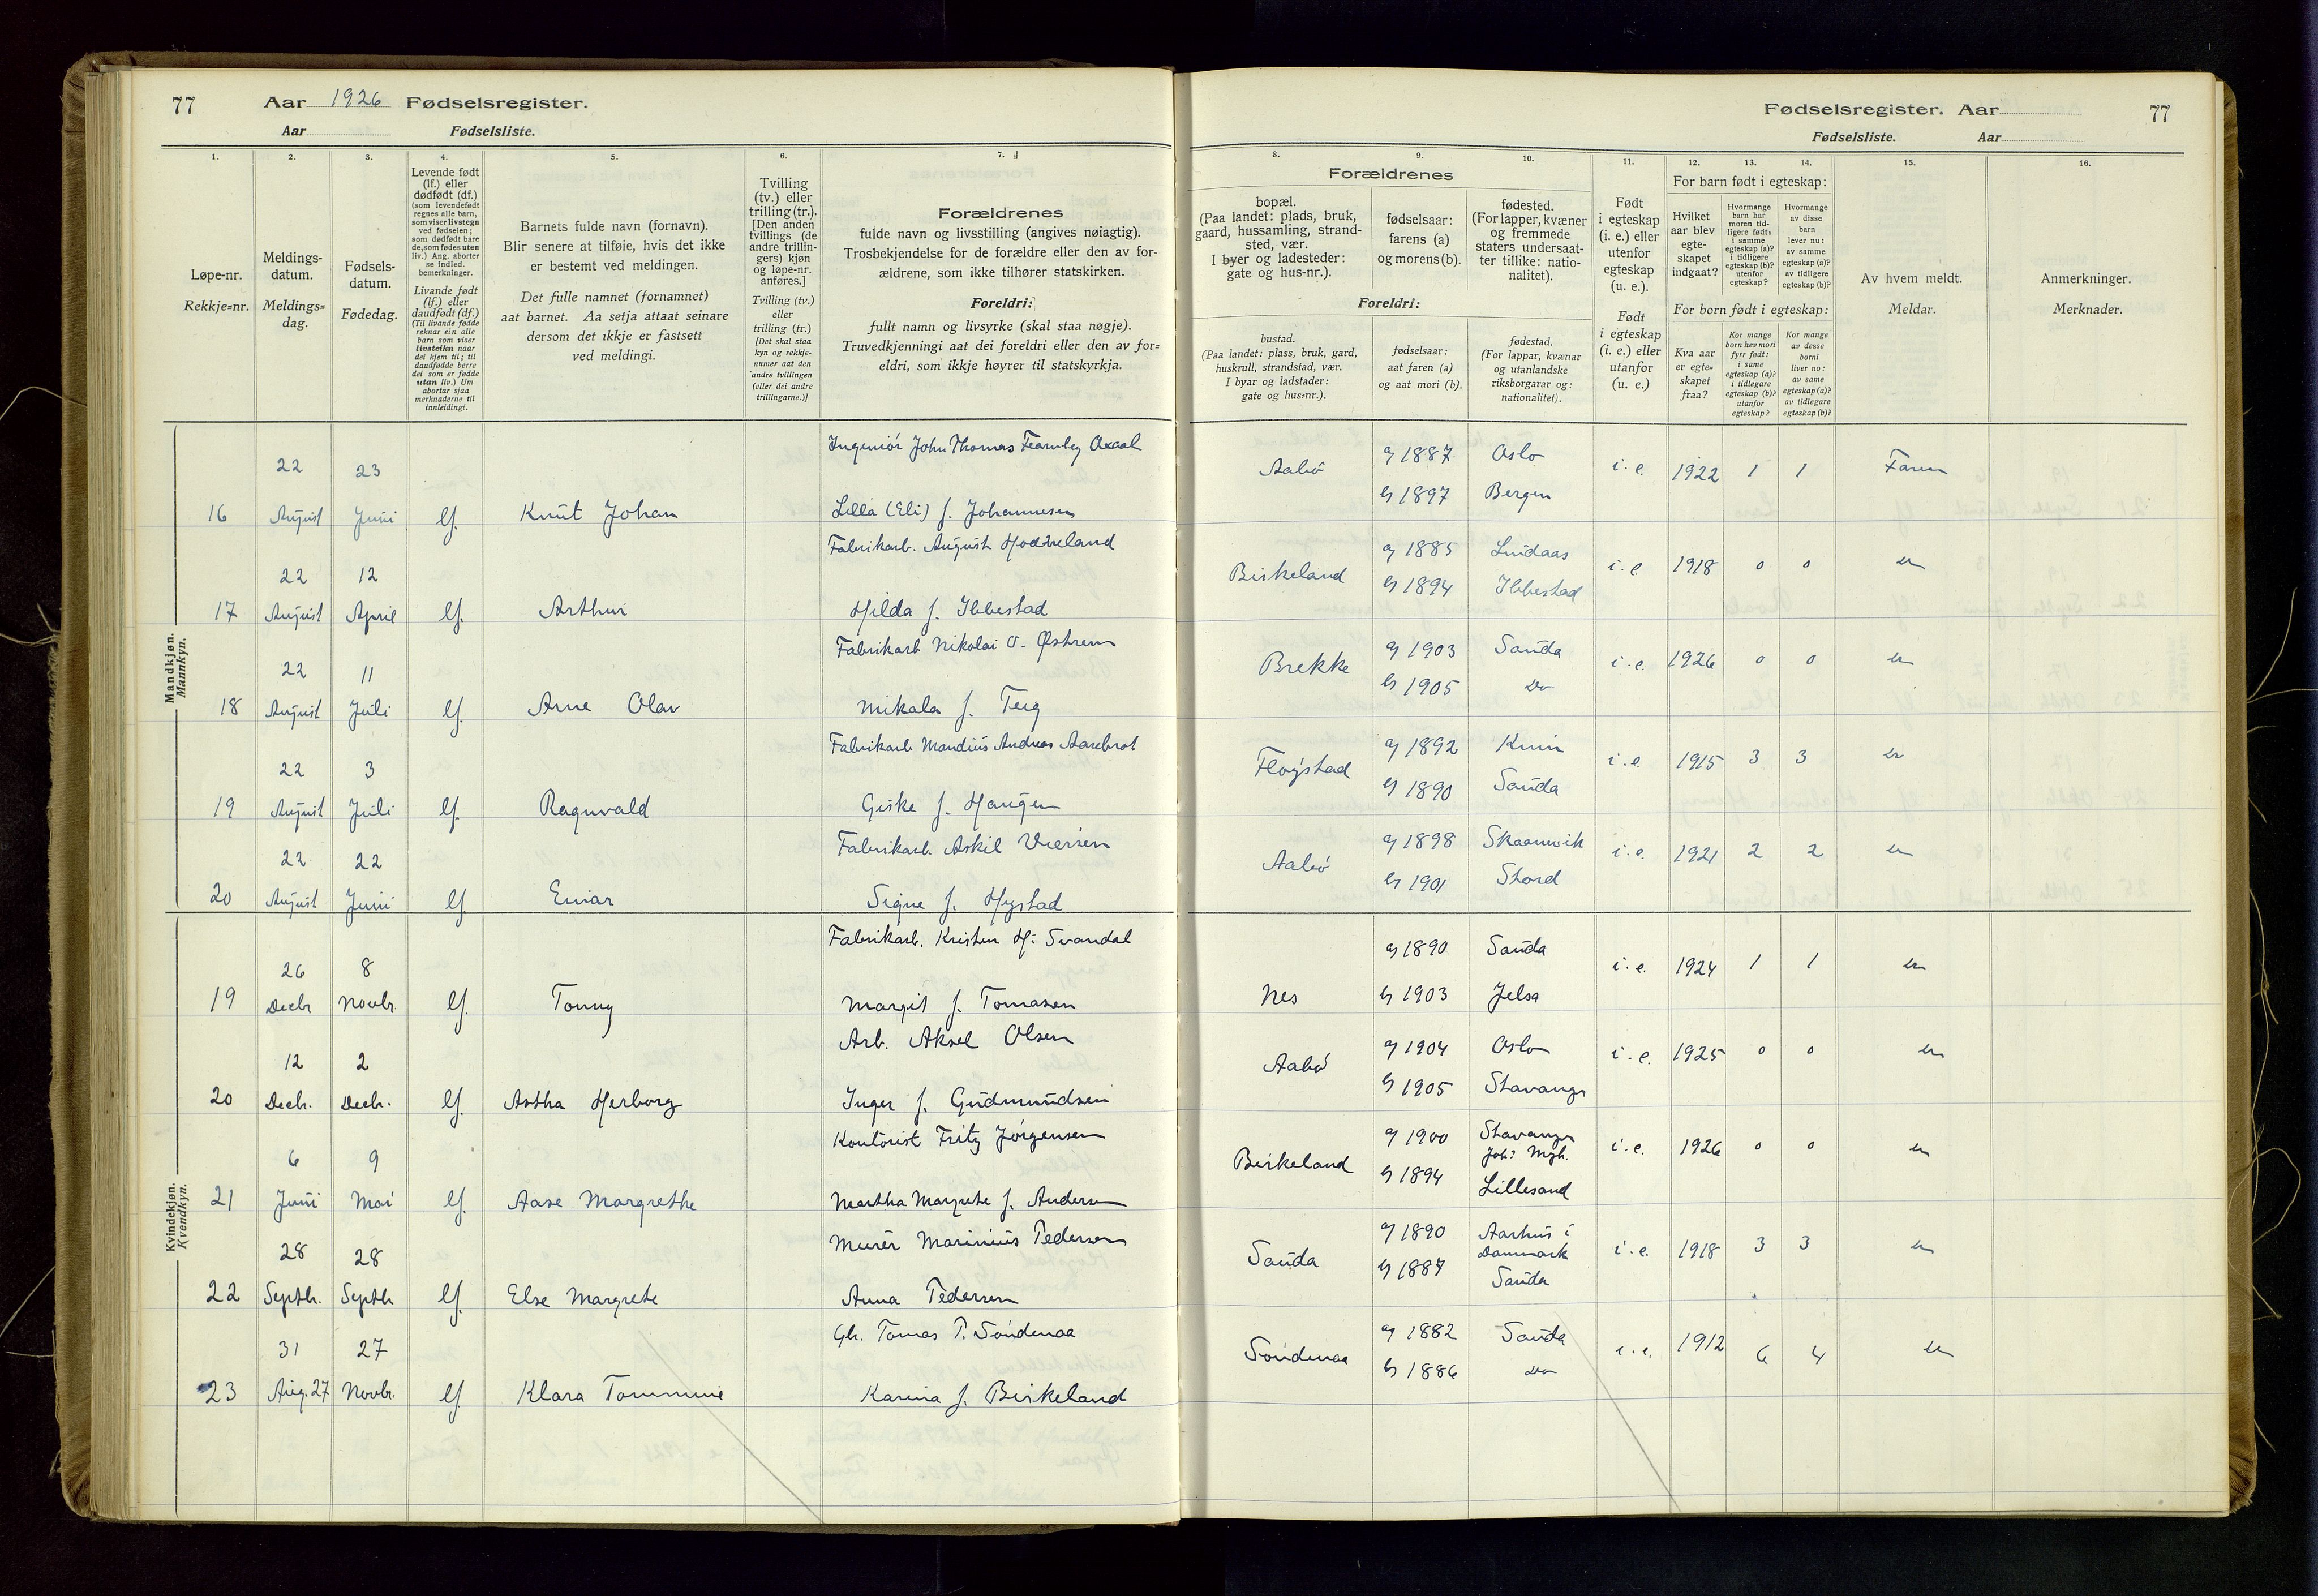 77 Aar 1926 Fødselsregister.
Aar Fødselsliste.
Fødselsregister. Aar 77
Fødselsliste. Aar
1. 2. 3. 4. 5. 6. 7.
8. 9. 10. 11. 12. 13. 14. 15. 16.
Løpe-nr.
Rekkje=nr.
Meldings-
datum.
Meldings=
dag.
Fødsels-
datum.
Fødedag.
Levende født
(lf.) eller
dødfødt (df.)
(som levendefødt
regnes alle barn,
som viser livstegn
ved fødselen;
som dødfødt bare
de, som fødes uten
liv.) Ang. aborter
se indled.
bemerkninger.
Livande født
(lf.) eller
daudfødt (df.)
(Til livande fødde
reknar ein alle
barn som viser
livsteikn naar
dei kjem til; til
daudfødde berre
dei som er fødde
utan liv.) Um
abortar sjaa
merknaderne til
innleidingi.
Barnets fulde navn (fornavn).
Blir senere at tilføie, hvis det ikke
er bestemt ved meldingen.
Det fulle namnet (fornamnet)
aat barnet. Aa setja attaat seinare
dersom det ikkje er fastsett
ved meldingi.
Tvilling
(tv.) eller
trilling (tr.).
[Den anden
tvillings (de
andre trillin-
gers) kjøn
og løpe-nr.
anføres.]
Tvilling (tv.)
eller
trilling (tr.)
[Det skal staa
kyn og rekkje-
numer aat den
andre tvillingen
(eller dei andre
trillingarne.)]
Forældrenes
fulde navn og livsstilling (angives nøiagtig).
Trosbekjendelse for de forældre eller den av for-
ældrene, som ikke tilhører statskirken.
Foreldri:
fullt namn og livsyrke (skal staa nøgje).
Truvedkjenningi aat dei foreldri eller den av for=
eldri, som ikkje høyrer til statskyrkja.
Forældrenes
bopæl.
(Paa landet: plads, bruk,
gaard, hussamling, strand-
sted, vær.
I byer og ladesteder:
gate og hus-nr.).
fødselsaar:
farens (a)
og morens (b).
fødested.
(For lapper, kvæner
og fremmede
staters undersaat-
ter tillike: natio-
nalitet).
Foreldri:
bustad.
(Paa landet: plass, bruk, gard,
huskrull, strandstad, vær.
I byar og ladstader:
gate og hus=nr.).
fødselsaar:
aat faren (a)
og aat mori (b).
fødestad.
(For lappar, kvænar
og utanlandske
riksborgarar og:
nationalitet).
Født
i egteskap
(i. e.) eller
utenfor
egteskap
(u. e.).
Født
i egteskap
(i. e.) eller
utanfor
(u. e.)
For barn født i egteskap:
Hvilket
aar blev
egte-
skapet
indgaat?
Hvormange
barn har
moren tid-
ligere født:
i samme
egteskap (a)?
i tidligere
egteskap (b)?
utenfor
egteskap?
Hvormange
av disse
barn
lever nu:
av samme
egteskap (a)?
av tidligere
egteskap (b)?
For born født i egteskap:
Kva aar
er egte=
skapet
fraa?
Kor mange
born hev mori
fyrr født:
i same
egteskap (a)?
i tidlegare
egteskap (b)?
utanfor
egteskap?
Kor mange
av desse
borni
liver no:
av same
egteskap (a)?
av tidlegare
egteskap (b)?
Av hvem meldt.
Meldar.
Anmerkninger.
Merknader.
Mandkjøn.
Mannkyn.
22 23 Ingeniør John Thomas Fearnley Aaal Aabø a 1887 Oslo i. e. 1922 1 1 Faren
16 August Juni lf. Knut Johan Lilla (Eli) f. Johannesen b 1897 Bergen
22 12 Fabrikarb. August Hodneland Birkeland a 1885 Lindaas i. e. 1918 0 0 do
17 August April lf. Arthur Hilda f. Ibbestad b 1894 Ibbestad
22 11 Fabrikarb Nikolai O. Østrem Brekke a 1903 Sauda i. e. 1926 0 0 do
18 August Juli lf. Arne Olav Mikala f. Teig b 1905 Do
22 3 Fabrikarb Mandius Andreas Aarebrot Fløgstad a 1892 Kinn i. e. 1915 3 3 do
19 August Juli lf. Ragnvald Giske f. Haugen b 1890 Sauda
22 22 Fabrikarb. Askil Aabø a 1898 Skaanevik i. e. 1921 2 2 do
20 August Juni lf. Einar Signe f. Hystad b 1901 Stord
Kvindekjøn.
Kvendkyn.
26 8 Fabrikarb. Kristen H. Svandal Nes a 1890 Sauda i. e. 1924 1 1 do
19 Decbr Novbr. lf. Tonny Margit f. Tomasen b 1903 Jelsa
12 2 Arb. Aksel Olsen Aabø a 1904 Oslo i. e. 1925 0 0 do
20 Decbr. Decbr. lf. Astha Herborg Inger f. Gudmundsen b 1905 Stavanger
6 9 Kontorist Fritz Jørgensen Birkeland a 1900 Stavanger i. e. 1926 0 0 do
21 Juni Mai lf. Aase Margrethe Martha Margrete f. Andersen b 1894 Lillesand
28 28 Murer Marinius Pedersen Sauda a 1890 Aarhus i Danmark i. e. 1918 3 3 do
22 Septb. Septb lf. Else Margrete Anna Pedersen b 1887 Sauda
31 27 Gb. Tomas T. Søndenaa Søndenaa a 1882 Sauda i. e. 1912 6 4 do
23 Aug. 27 Novbr. lf. Klara Tommine Karina f. Birkeland b 1886 Do